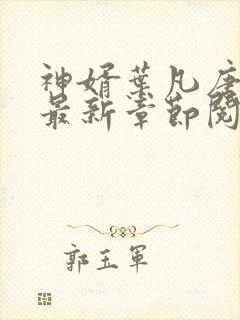 神婿葉凡唐
最新章節閱
郭玉軍